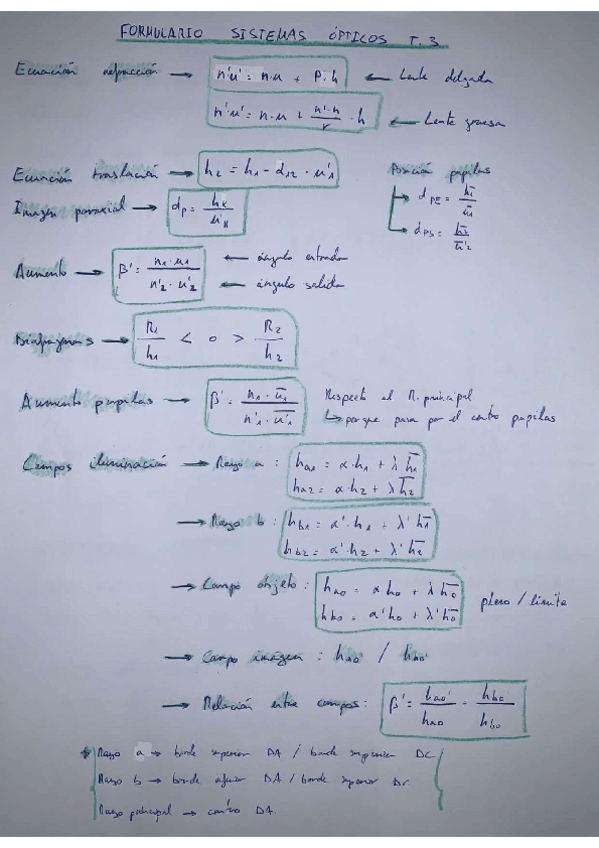 FORMULARIO SISTEMAS ÓPTICOS T.3
Ecuación refracción → n'u' = n·u + P·h ← Lente delgada
n'u' = n·u + n'-n/r · h ← Lente gruesa
Ecuación traslación → h₂ = h₁ - d₁₂ · u'₁
Posición pupilas
→ dPE = h̄₁/ū₁
→ dPS = h̄₂/ū'₂
Imagen paraxial → dp = hₖ/u'ₖ
Aumento → β' = n₁·u₁/n'₂·u'₂ ← ángulo entrada
← ángulo salida
Diafragmas → R₁/h₁ < o > R₂/h₂
Aumento pupilas → β' = n₁·ū₁/n'₁·ū'₁
Respecto al R. principal
↳ porque pasa por el centro pupilas
Campos iluminación → Rayo a : ha₁ = α·h₁ + λ h̄₁
ha₂ = α·h₂ + λ h̄₂
→ Rayo b : hb₁ = α'·h₁ + λ'·h̄₁
hb₂ = α'·h₂ + λ'·h̄₂
→ Campo objeto : hao = α ho + λ h̄o
hbo = α'ho + λ'h̄o
pleno / límite
→ Campo imágen : hao' /
→ Relación entre campos : β' = hao'/hao = hbo'/hbo
* Rayo a → borde superior DA / borde DC
Rayo b → borde DA / borde superior
Rayo principal → centro DA.